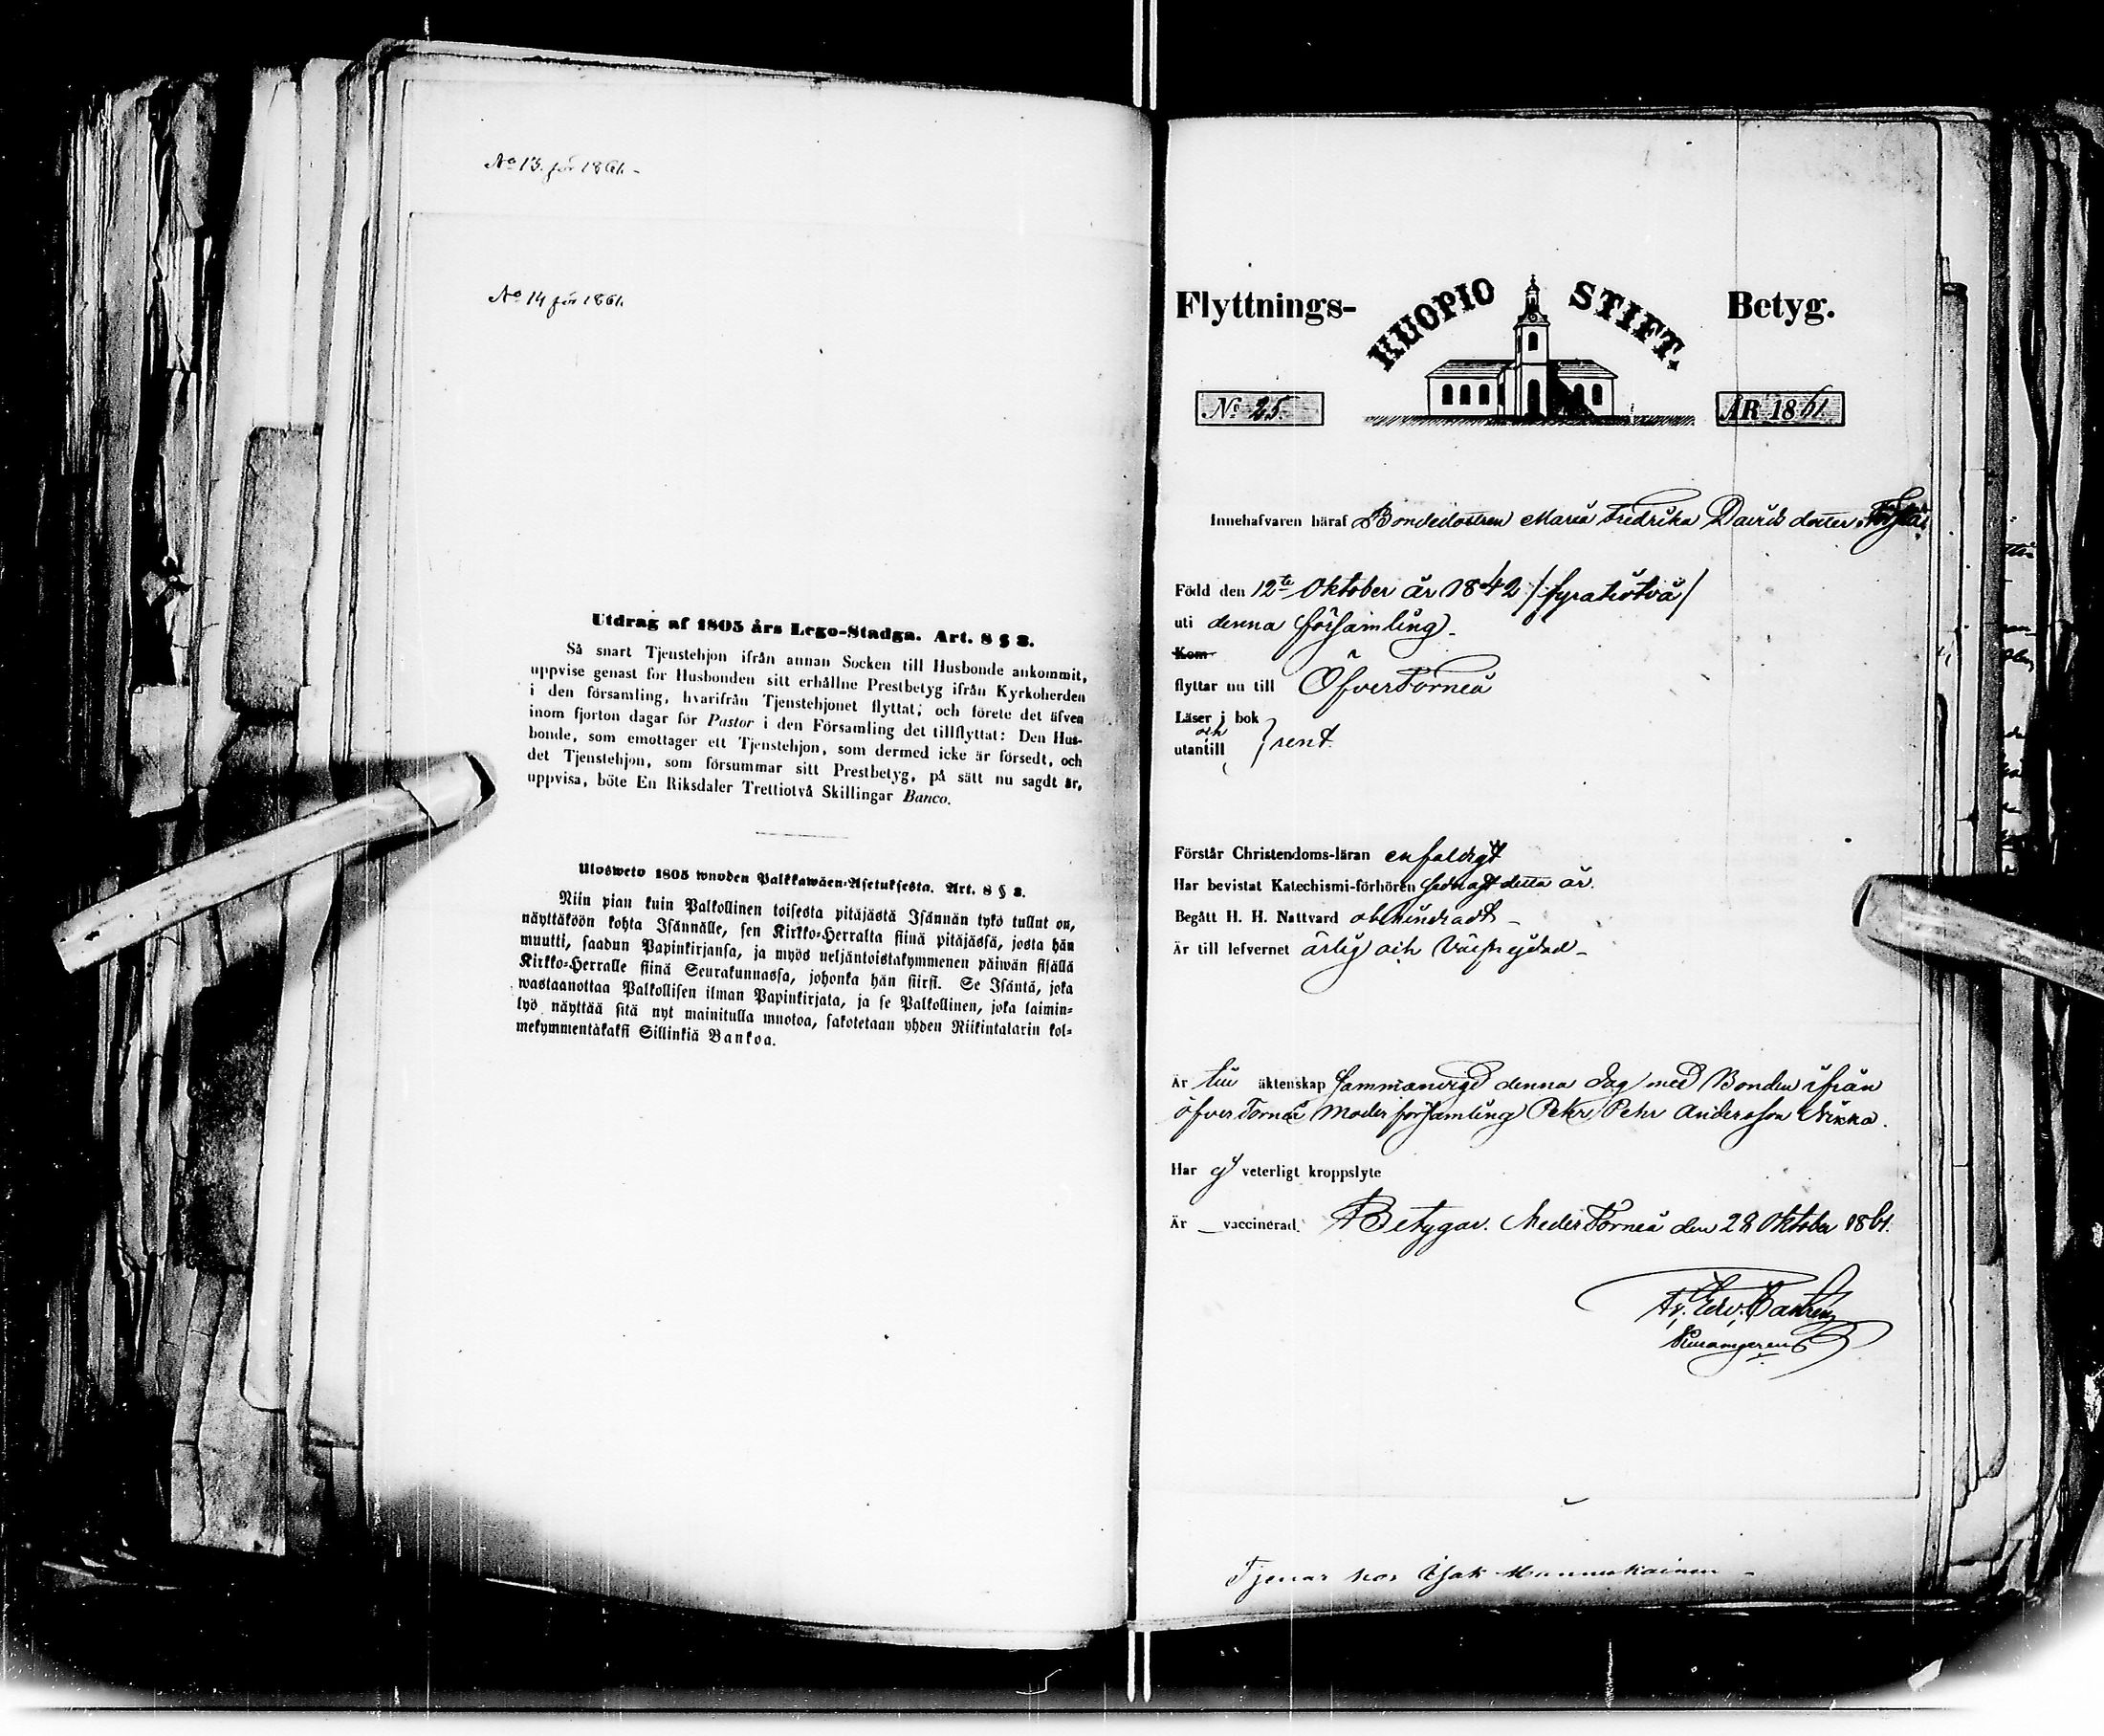 No 13. för 1861. -
No 14 för 1861.
Utdrag af 1805 års Lego-Stadga. Art. 8 § 3.
Så snart Tjenstehjon ifrån annan Socken till Husbonde ankommit,
uppvise genast för Husbonden sitt erhållne Prestbetyg ifrån Kyrkoherden
i den församling, hvarifrån Tjenstehjonet flyttat; och förete det äfven
inom fjorton dagar för Pastor i den Församling det tillflyttat: Den Hus-
bonde, som emottager ett Tjenstehjon, som dermed icke är försedt, och
det Tjenstehjon, som försummar sitt Prestbetyg, på sätt nu sagdt är,
uppvisa, böte En Riksdaler Trettiotvå Skillingar Banco.
Ulosweto 1805 wuoden Palkkawäen-Asetuksesta. Art. 8 § 3.
Niin pian kuin Palkollinen toisesta pitäjästä Isännän tykö tullut on,
näyttäköön kohta Isännälle, sen Kirkko-Herralta siinä pitäjässä, josta hän
muutti, saadun Papinkirjansa, ja myös neljäntoistakymmenen päiwän sisällä
Kirkko-Herralle siinä Seurakunnassa, johonka hän siirsi. Se Isäntä, joka
wastaanottaa Palkollisen ilman Papinkirjata, ja se Palkollinen, joka laimin-
lyö näyttää sitä nyt mainitulla muotoa, sakotetaan yhden Riikintalarin kol-
mekymmentäkaksi Sillinkiä Bankoa.
Flyttnings- KUOPIO STIFT. Betyg.
No 25. ÅR 1861
Innehafvaren häraf Bondedottren Maria Fredrika Davids dotter
Född den 12te Oktober år 1842 /fyratiotvå/
uti denna församling.
Kom
flyttar nu till Öfver Torneå
Läser i bok
och
utantill } rent.
Förstår Christendoms-läran enfaldigt
Har bevistat Katechismi-förhören sednast detta år.
Begått H. H. Nattvard obehindradt -
Är till lefvernet ärlig och väl frejdad -
Är till äktenskap sammanvigd denna dag med Bonden ifrån
öfver Torneå Moderförsamling Petr Pehr Andersson Nikka.
Har ej veterligt kroppslyte
Är _ vaccinerad. Betygar. Neder Torneå den 28 Oktober 1861.
Tjenar hos Isak Mannukainen -